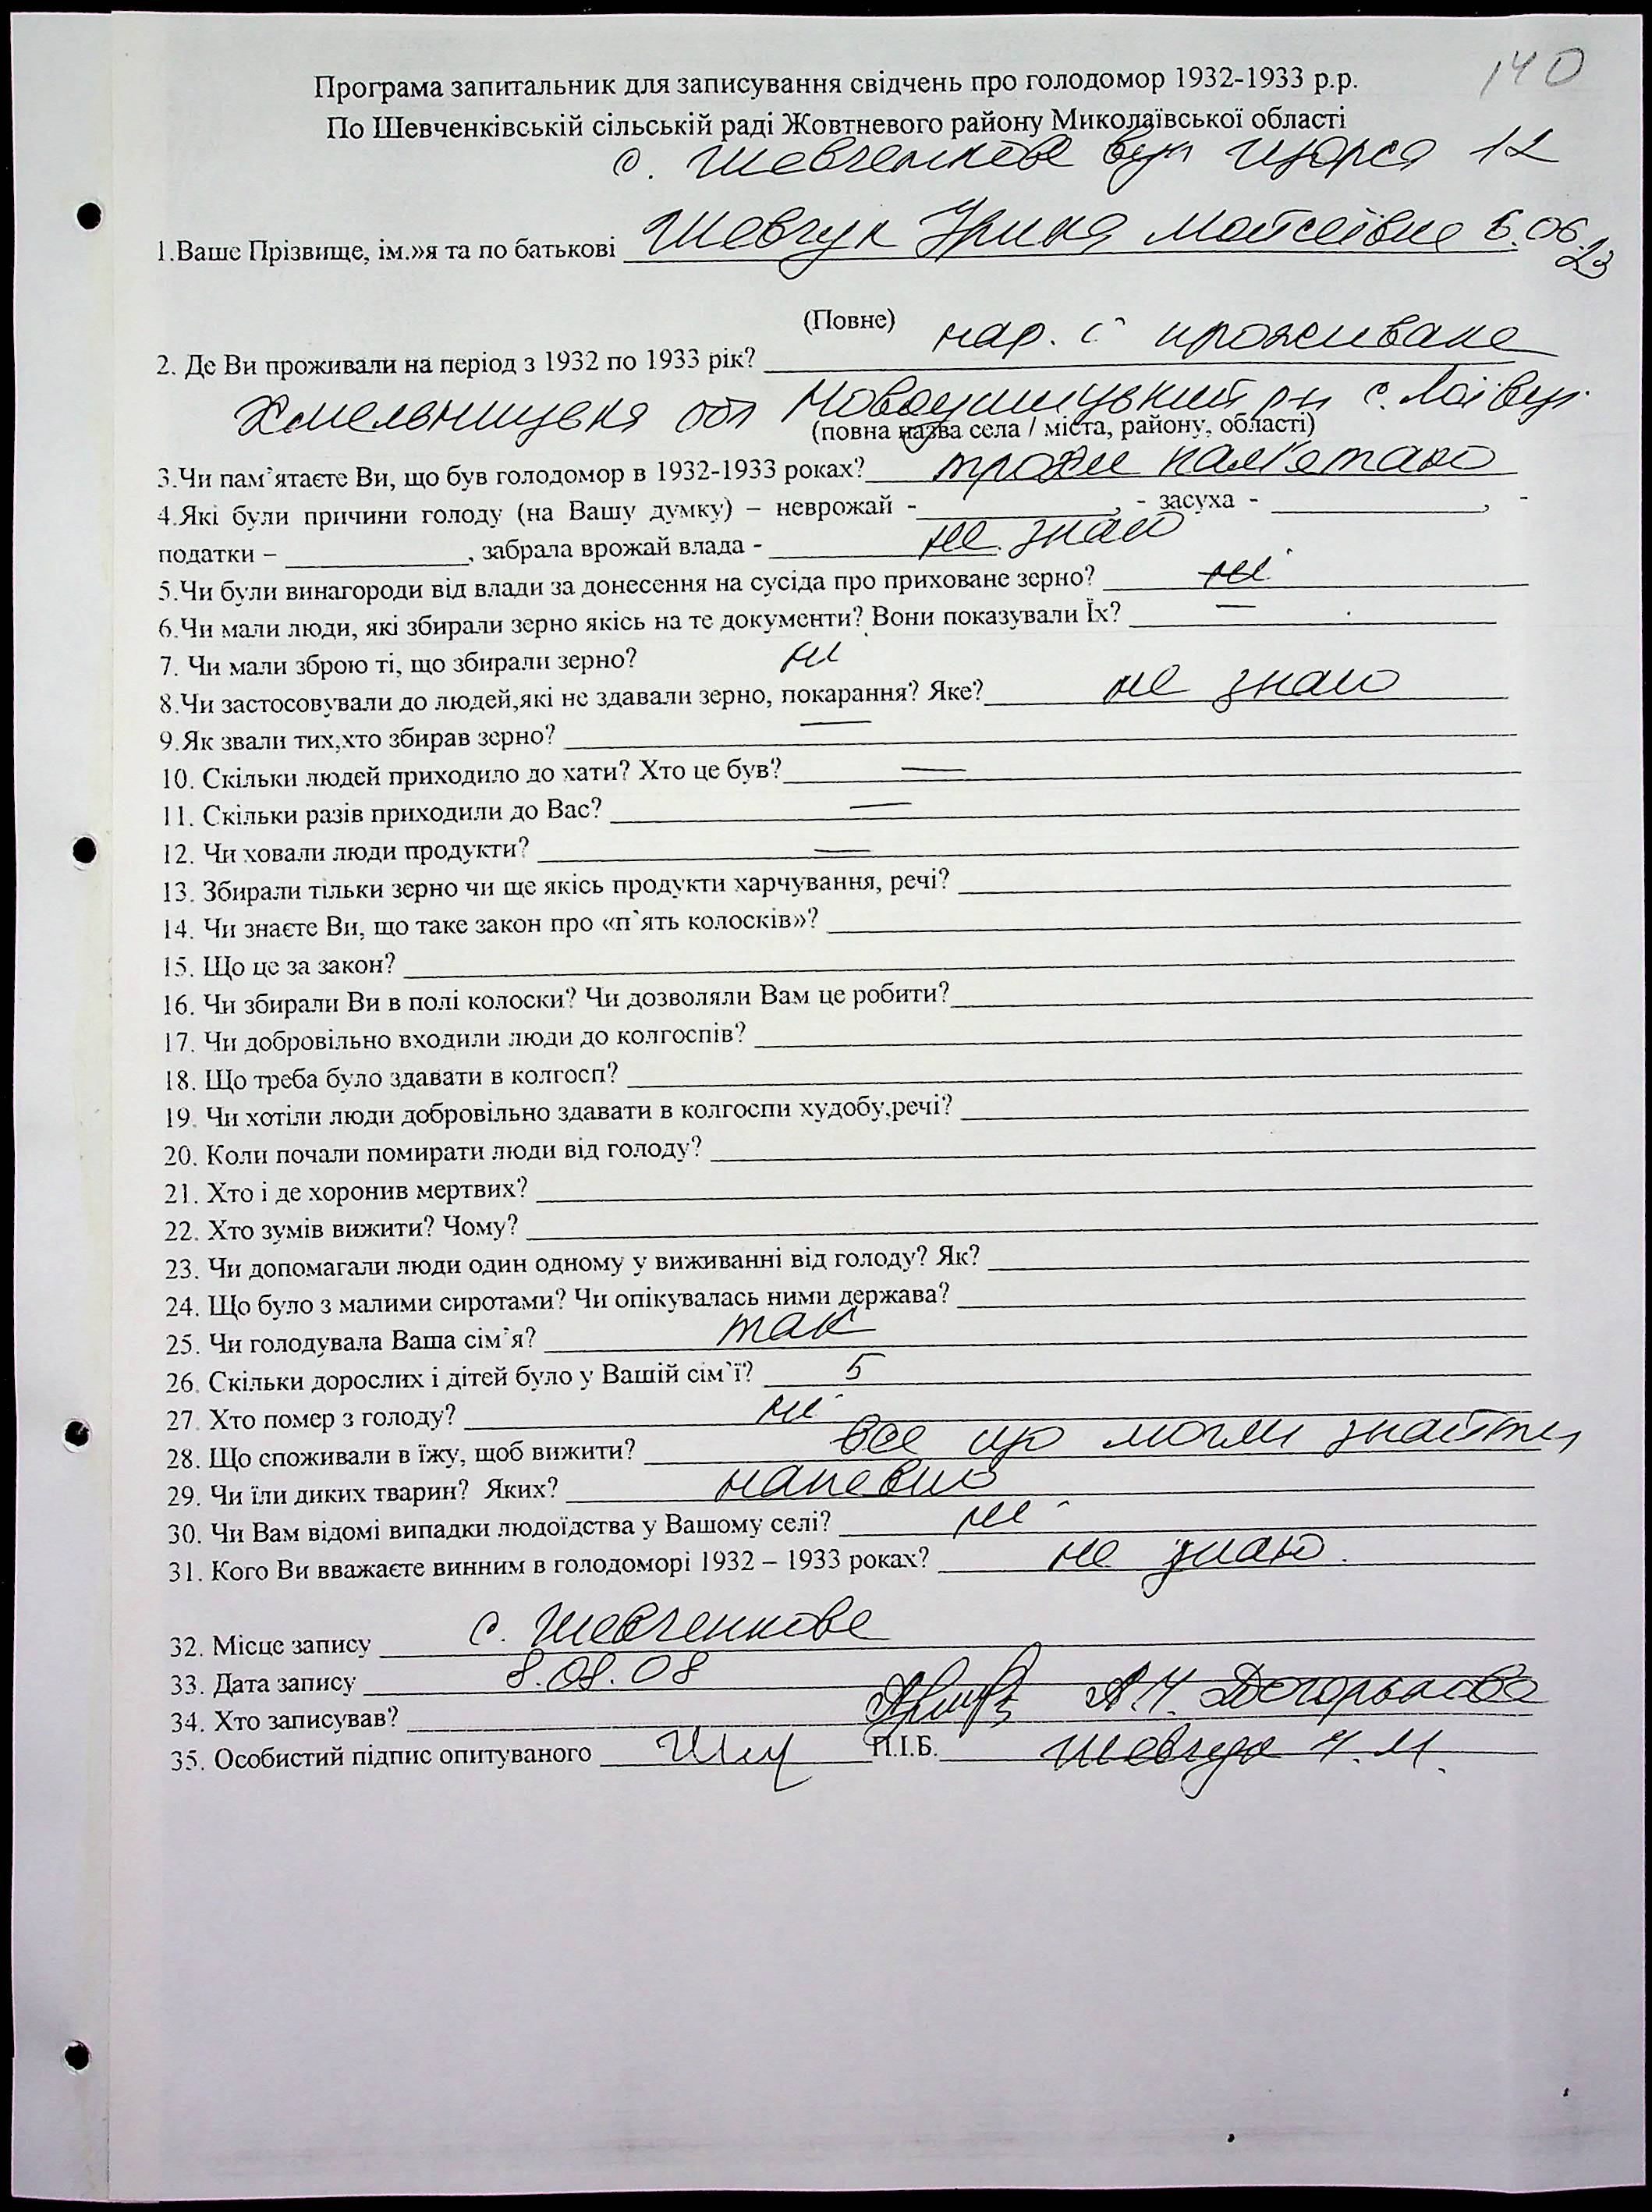 140
Програма запитальник для записування свідчень про голодомор 1932-1933 р.р.
По Шевченківській сільській раді Жовтневого району Миколаївської області
с. Шевченкове вул Щорса 12
1.Ваше Прізвище, ім.»я та по батькові Шевчук Ярина Мойсеївна 6.06.23
(Повне)
2. Де Ви проживали на період з 1932 по 1933 рік? нар. і проживала
Хмельницька обл Новоушицький рн с.
(повна назва села / міста, району, області)
3.Чи пам`ятаєте Ви, що був голодомор в 1932-1933 роках? трохи пам'ятаю
4.Які були причини голоду (на Вашу думку) – неврожай - , - засуха - , -
податки – , забрала врожай влада - не знаю
5.Чи були винагороди від влади за донесення на сусіда про приховане зерно? ні
6.Чи мали люди, які збирали зерно якісь на те документи? Вони показували Їх? —
7. Чи мали зброю ті, що збирали зерно? ні
8.Чи застосовували до людей,які не здавали зерно, покарання? Яке? не знаю
9.Як звали тих,хто збирав зерно? —
10. Скільки людей приходило до хати? Хто це був? —
11. Скільки разів приходили до Вас? —
12. Чи ховали люди продукти? —
13. Збирали тільки зерно чи ще якісь продукти харчування, речі?
14. Чи знаєте Ви, що таке закон про «п`ять колосків»?
15. Що це за закон?
16. Чи збирали Ви в полі колоски? Чи дозволяли Вам це робити?
17. Чи добровільно входили люди до колгоспів?
18. Що треба було здавати в колгосп?
19. Чи хотіли люди добровільно здавати в колгоспи худобу,речі?
20. Коли почали помирати люди від голоду?
21. Хто і де хоронив мертвих?
22. Хто зумів вижити? Чому?
23. Чи допомагали люди один одному у виживанні від голоду? Як?
24. Що було з малими сиротами? Чи опікувалась ними держава?
25. Чи голодувала Ваша сім`я? так
26. Скільки дорослих і дітей було у Вашій сім`ї? 5
27. Хто помер з голоду? ні
28. Що споживали в їжу, щоб вижити? все що могли знайти
29. Чи їли диких тварин? Яких? напевно
30. Чи Вам відомі випадки людоїдства у Вашому селі? ні
31. Кого Ви вважаєте винним в голодоморі 1932 – 1933 роках? не знаю.
32. Місце запису с. Шевченкове
33. Дата запису 8.08.08
34. Хто записував?
35. Особистий підпис опитуваного П.І.Б. Шевчук Я. М.